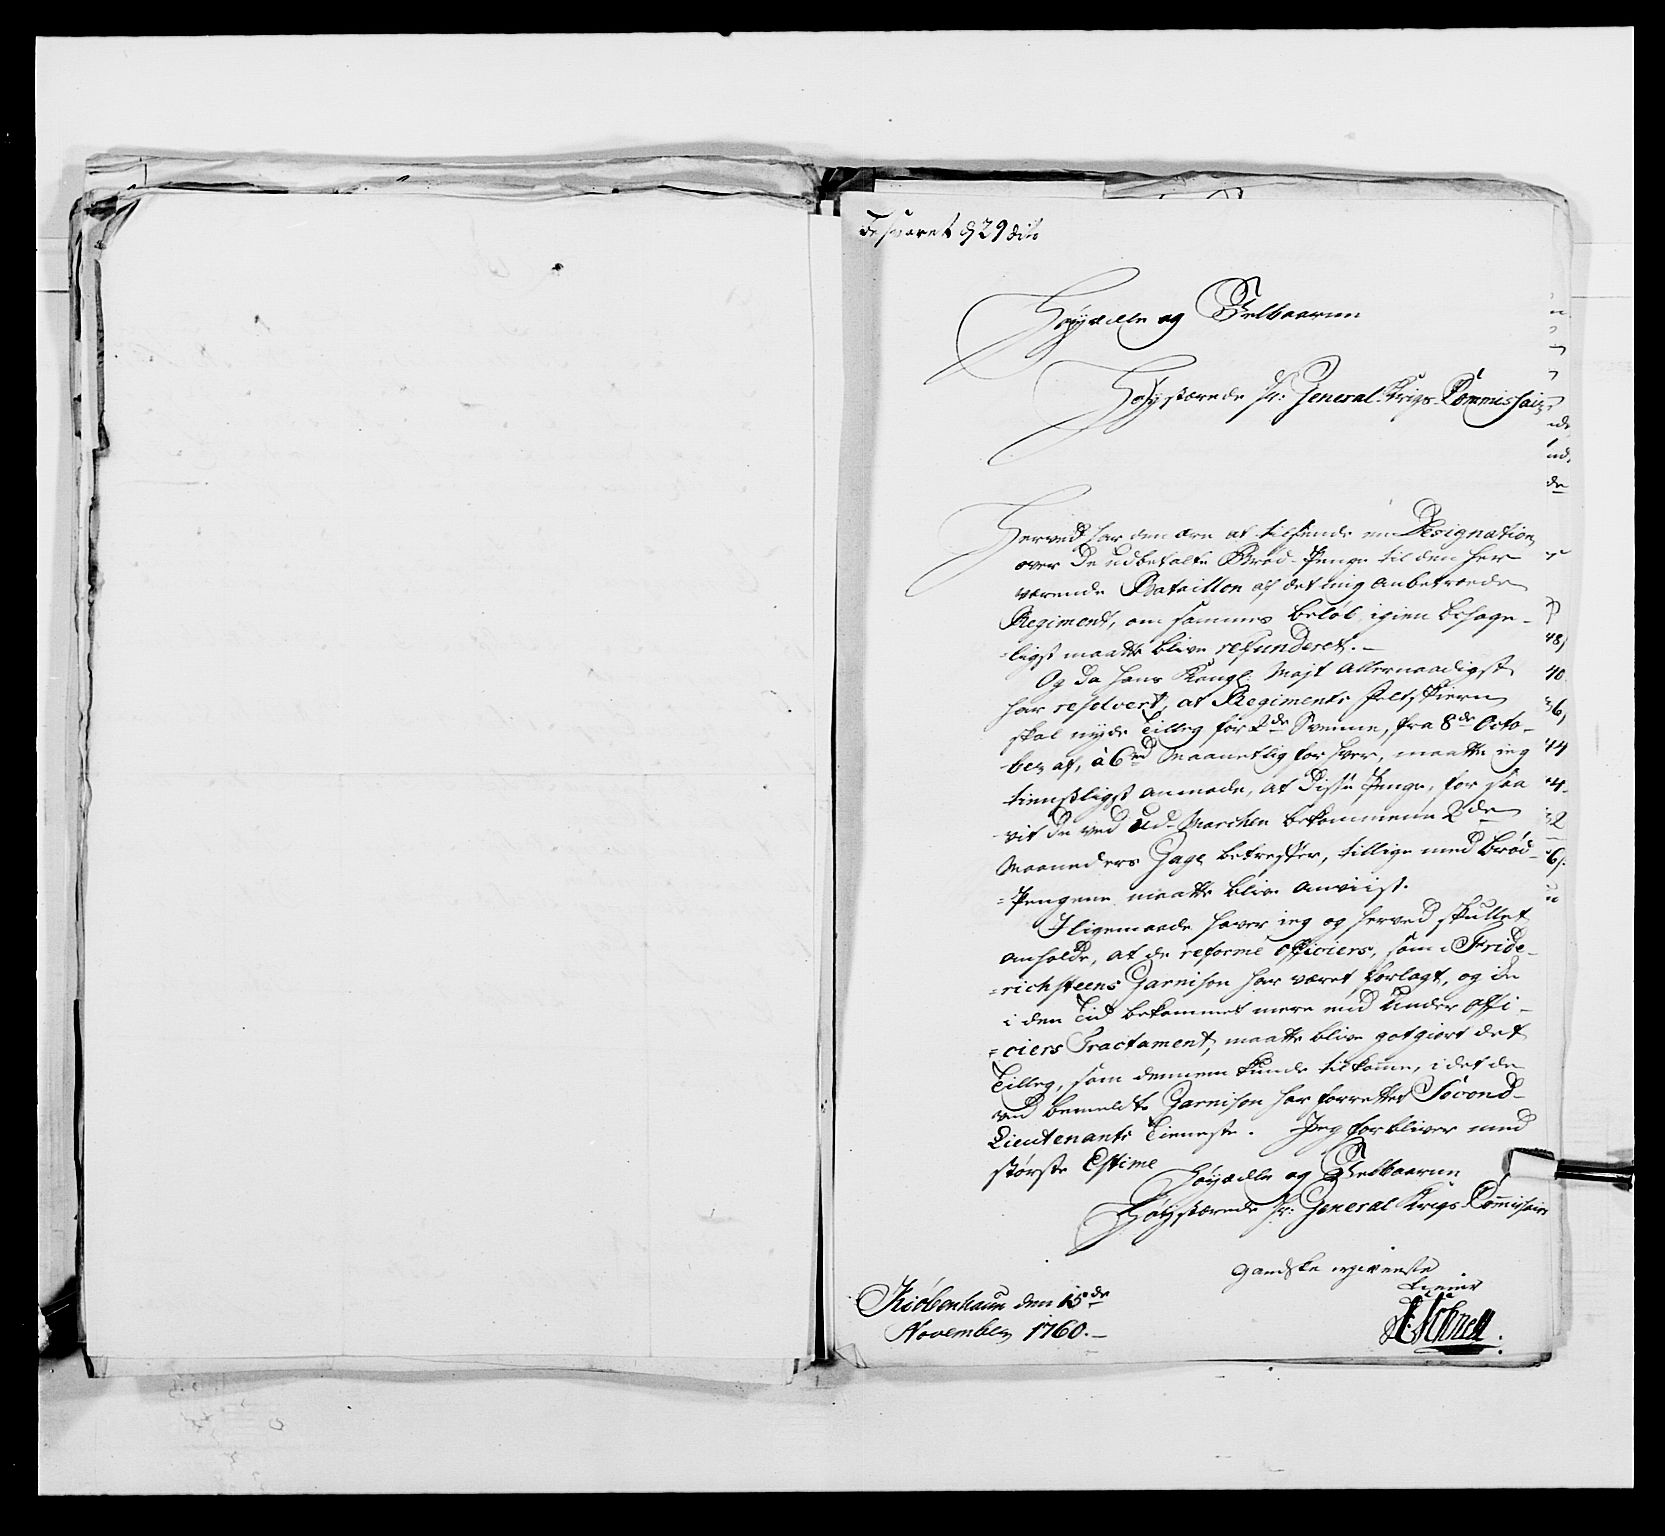 Besvaret d 29 dito
Høyædle og Velbaarne
Høystærede Hr: General-Krigs-Commissair
Herved har den ære at tilsende en Designation
over De udbetalte Brød-Penge til den her
værende Bataillon af det mig anbetroede
Regiment, om sammes beløb igien behage-
-ligst maatte blive refunderet.-
Og da Hans Kongl: Mayt Allernaadigst
har resolvert, at Regiments Feltskieren
skal nyde Tilleg for 2de Svenne, fra 8de Octo-
ber af, à 6rd Maanetlig for hver, maatte ieg
tienstligst anmode, at disse Penge, for saa
vit de ved Ud-Marchen bekommene 2de
Maaneders Gage betreffer, tillige med Brød-
-Pengene maatte blive anviist.
Iligemaade haver ieg og herved skullet
anholde, at de reforme Officiers, som i Fride-
-richsteens Garnison har været forlagt, og ike
i den Tid bekommet mere end Under Offi-
-ciers Tractament, maatte blive gotgiort det
Tilleg, som dennem kunde tilkomme, i det de
ved bemeldte Garnison har forrettet Second-
Lieutenants Tieneste. Jeg forbliver med
største Estime
Høyædle og Velbaarne
Høystærede Hr: General Krigs-Commissair
Gandske ergivenste
tiener
Kiøbenhaun den 15de
November 1760.-